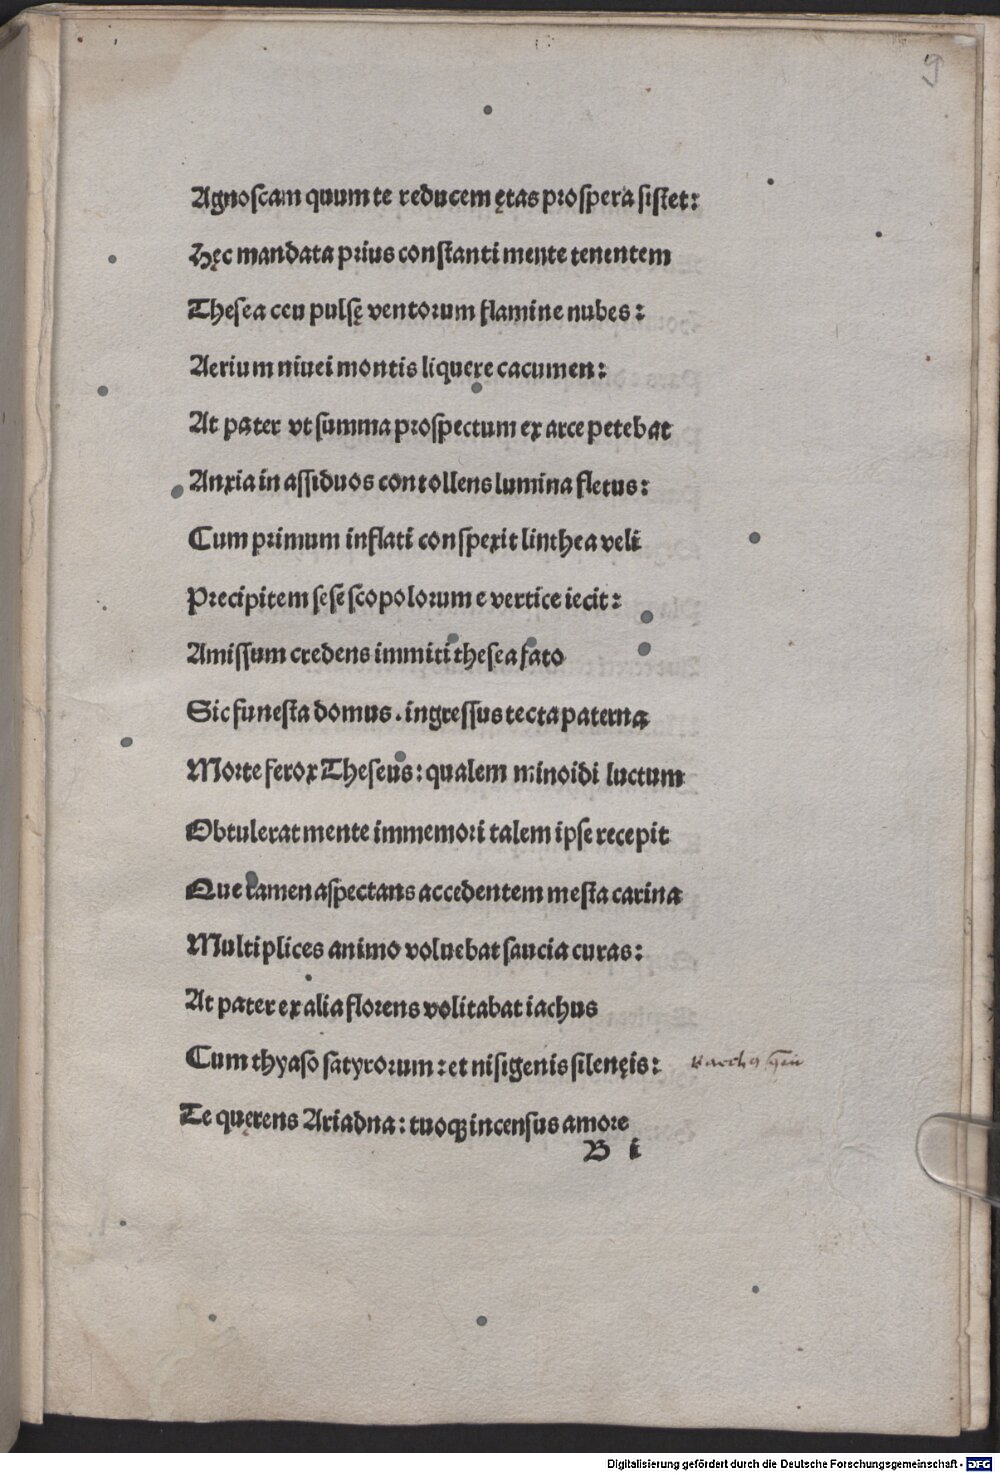 9
Agnoscam quum te reducem ętas prospera sistet:
Hęc mandata prius constanti mente tenentem
Thesea ceu pulsę ventorum flamine nubes:
Aerium niuei montis liquere cacumen:
At pater vt summa prospectum ex arce petebat
Anxia in assiduos contollens lumina fletus:
Cum primum inflati conspexit linthea veli
Precipitem sese scopolorum e vertice iecit:
Amissum credens immiti thesea fato
Sic funesta domus. ingressus tecta paterna
Morte ferox Theseus: qualem minoidi luctum
Obtulerat mente immemori talem ipse recepit
Que tamen aspectans accedentem mesta carina
Multiplices animo voluebat saucia curas:
At pater ex alia florens volitabat iachus
Cum thyaso satyrorum: et nisigenis silenęis:
Te quęrens Ariadna: tuoqꝫ incensus amore
B i
Digitalisierung gefördert durch die Deutsche Forschungsgemeinschaft - DFG